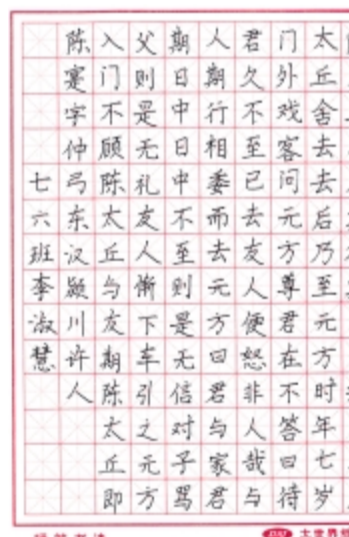 太丘舍去去后乃至元方时年七岁
门外戏客问元方尊君在不答曰待
君久不至已去友人便怒非人哉与
人期行相委而去元方曰君与家君
期日中日中不至则是无信对子骂
父则是无礼友人惭下车引之元方
入门不顾陈太丘与友期陈太丘即
陈寔字仲弓东汉颍川许人
七六班李淑慧